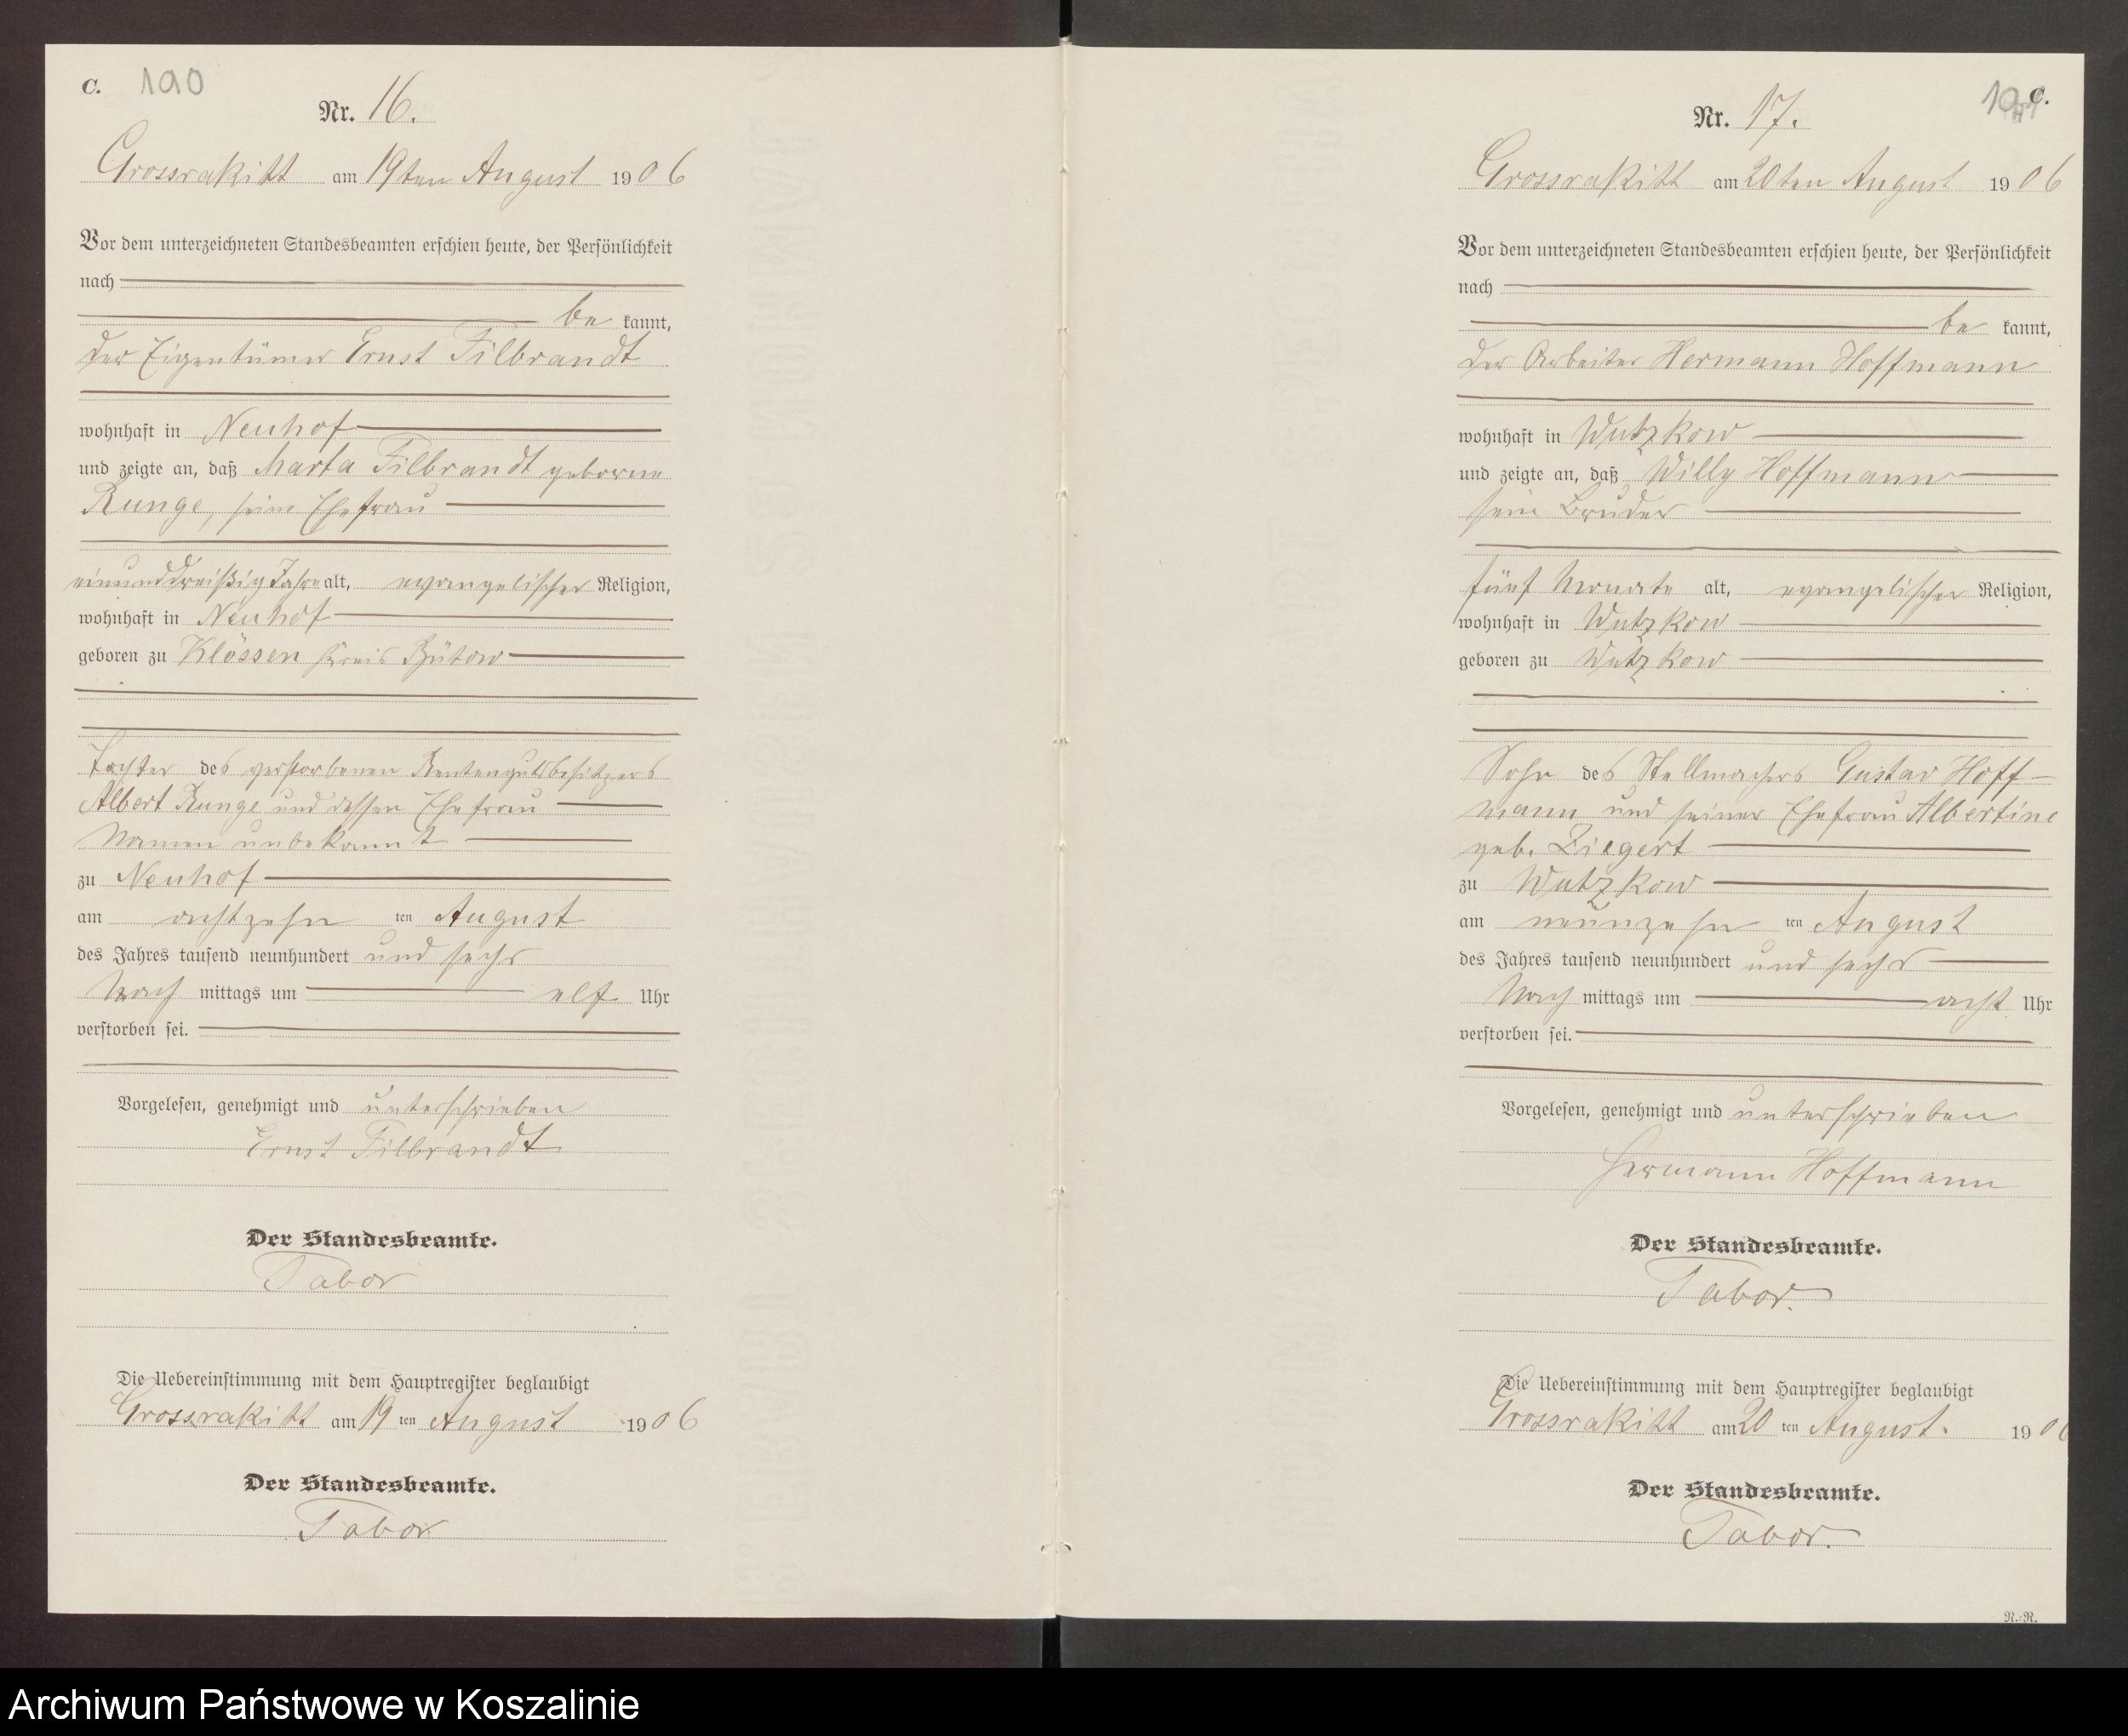 C. 190
Nr. 16.
Grossrakitt am 19ten August 1906
Vor dem unterzeichneten Standesbeamten erschien heute, der Persönlichkeit
nach
be kannt,
der Eigentümer Ernst Filbrandt
wohnhaft in Neuhof
und zeigte an, daß Marta Filbrandt geborene
Runge, seine Ehefrau
einunddreißig Jahre alt, evangelischer Religion,
wohnhaft in Neuhof
geboren zu Klössen Kreis Bütow
Tochter des verstorbenen Rentengutsbesitzers
Albert Runge und dessen Ehefrau
Namen unbekannt
zu Neuhof
am achtzehn ten August
des Jahres tausend neunhundert und sechs
Nach mittags um elf Uhr
verstorben sei.
Vorgelesen, genehmigt und unterschrieben
Ernst Filbrandt
Der Standesbeamte.
Tabor
Die Uebereinstimmung mit dem Hauptregister beglaubigt
Grossrakitt am 19 ten August 1906
Der Standesbeamte.
Tabor
C.
Nr. 17.
Grossrakitt am 20ten August 1906
Vor dem unterzeichneten Standesbeamten erschien heute, der Persönlichkeit
nach
be kannt,
der Arbeiter Hermann Hoffmann
wohnhaft in Wutzkow
und zeigte an, daß Willy Hoffmann
sein Bruder
fünf Monate alt, evangelischer Religion,
wohnhaft in Wutzkow
geboren zu Wutzkow
Sohn des Stellmachers Gustav Hoff-
mann und seiner Ehefrau Albertine
geb. Ziegert
zu Wutzkow
am neunzehn ten August
des Jahres tausend neunhundert und sechs
Nach mittags um acht Uhr
verstorben sei.
Vorgelesen, genehmigt und unterschrieben
Hermann Hoffmann
Der Standesbeamte.
Tabor.
Die Uebereinstimmung mit dem Hauptregister beglaubigt
Grossrakitt am 20 ten August. 1906
Der Standesbeamte.
Tabor.
N.-R.
Archiwum Państwowe w Koszalinie